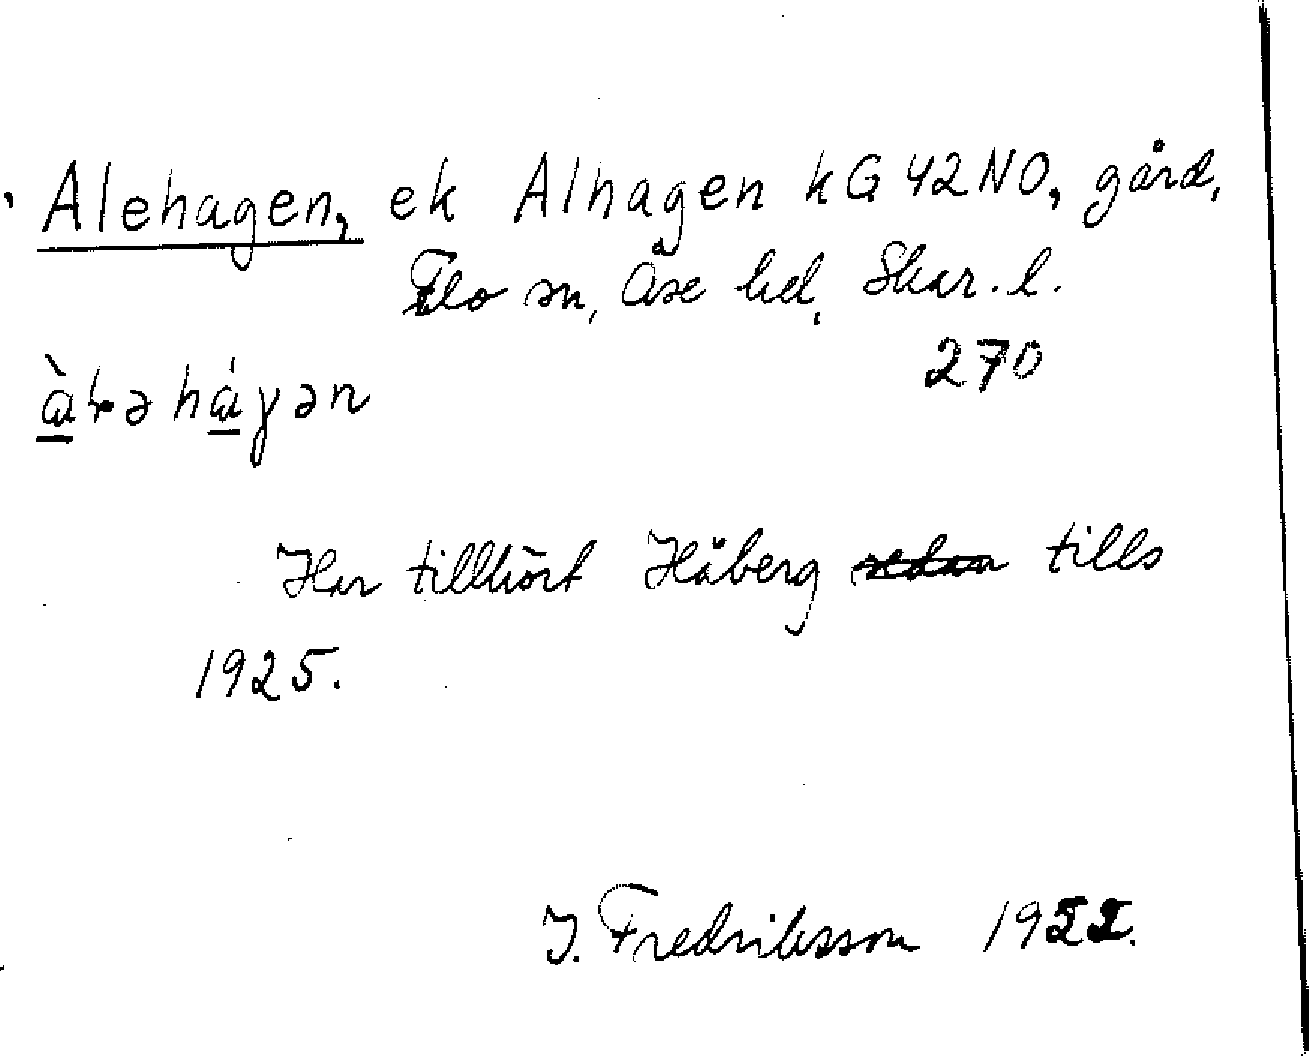 Alehagen, ek Alhagen kG 42NO, gård,
Flo sn, Åse hd, Skar. l.
270
Har tillhört Håberg tills
1925.
I. Fredriksson 19